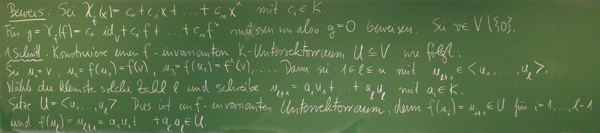 Beweis: Sei χ_f(x) = c_0 + c_1 x + ... + c_n x^n mit c_i ∈ K
Für g = χ_f(f) = c_0 id_V + c_1 f + ... + c_n f^n müssen wir also g = 0 beweisen. Sei v ∈ V\{0}.
1. Schritt. Konstruiere einen f-invarianten K-Untervektorraum U ⊆ V wie folgt.
Sei u_1 = v, u_2 = f(u_1) = f(v), u_3 = f(u_2) = f²(v), ... Dann sei 1 ≤ l ≤ n mit u_{l+1} ∈ <u_1, ..., u_l>.
Wähle die kleinste solche Zahl l und schreibe u_{l+1} = a_1 u_1 + ... + a_l u_l mit a_i ∈ K.
Setze U = <u_1, ..., u_l> Dies ist ein f-invarianter Untervektorraum, denn f(u_i) = u_{i+1} ∈ U für i = 1, ..., l-1
und f(u_l) = u_{l+1} = a_1 u_1 + ... + a_l u_l ∈ U.